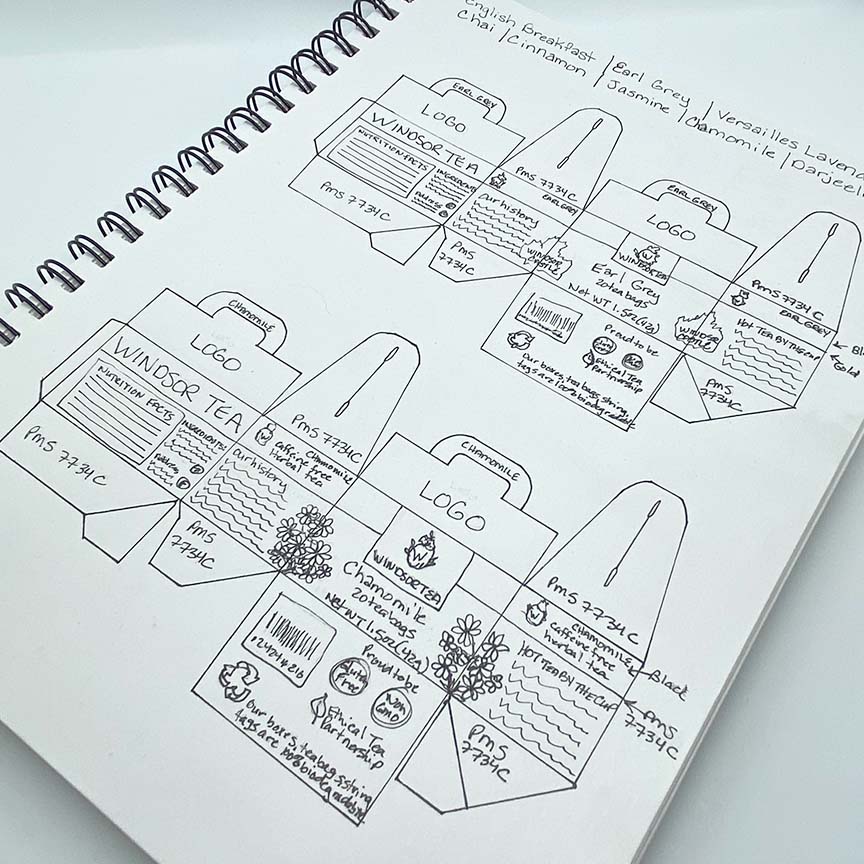 English Breakfast / Earl Grey / Versailles Lavend
Chai / Cinnamon / Jasmine / Chamomile / Darjeeli
EARL GREY
LOGO
WINDSOR TEA
NUTRITION FACTS
INGREDIENTS
Address
PMS 7734C
PMS 7734C
EARL GREY
Our history
WINDSOR
CASTLE
PMS
7734C
EARL GREY
LOGO
WINDSORTEA
Earl Grey
20 tea bags
Net WT 1.5oz (42g)
Proud to be
Ethical Tea
Partnership
Our boxes, tea bags, string,
tags are 100% biodegradable
PMS 7734C
EARL GREY
HOT TEA BY THE CUP
WINDSOR
CASTLE
PMS
7734C
Gold
CHAMOMILE
LOGO
WINDSOR TEA
NUTRITION FACTS
INGREDIENTS:
Address
PMS 7734C
PMS 7734C
CHAMOMILE
caffeine free
herbal tea
Our history
PMS
7734C
CHAMOMILE
LOGO
W
WINDSORTEA
Chamomile
20 tea bags
Net WT 1.5oz (42g)
Proud to be
Gluten
Free
Non
GMO
Ethical Tea
Partnership
Our boxes, tea bags, string,
tags are 100% biodegradable
PMS 7734C
CHAMOMILE
caffeine free
herbal tea
HOT TEA BY THE CUP
PMS
7734C
Black
PMS
7734C